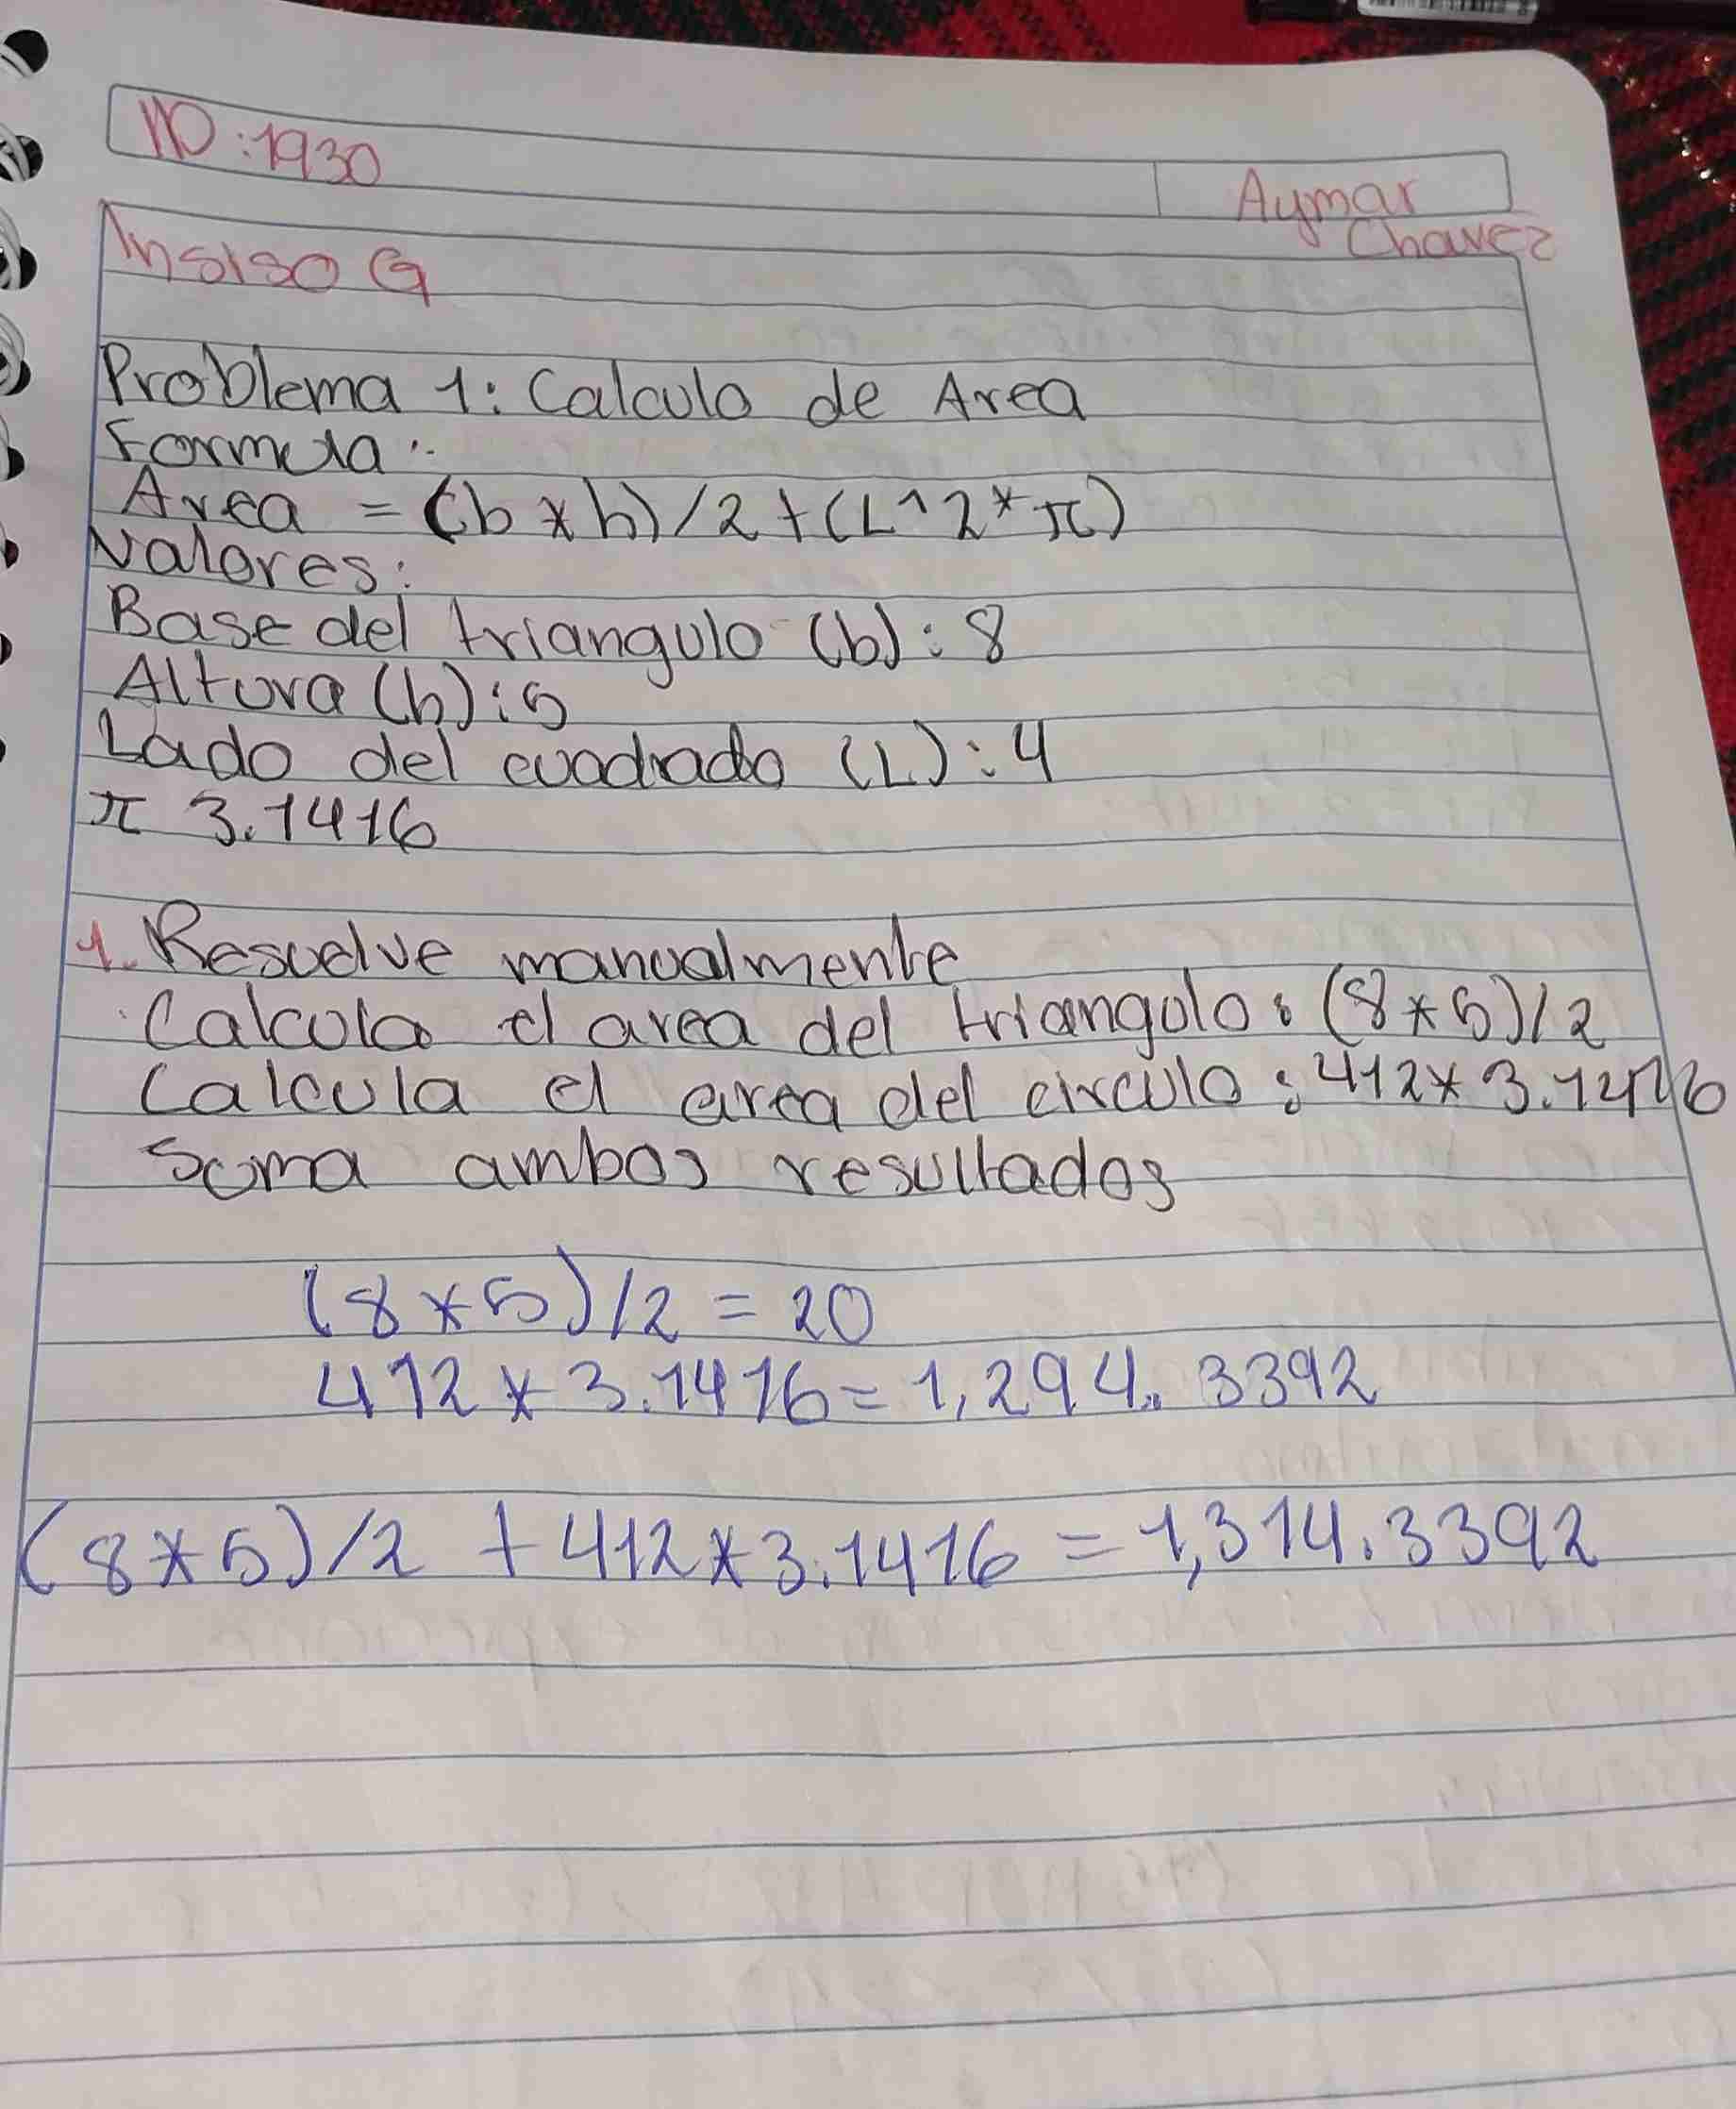 NO:1930
Aymar
Chavez
Insiso G
Problema 1: Calculo de Area
Formula:
Area = (b*h)/2+(L^2*π)
Valores:
Base del triangulo (b): 8
Altura (h): 5
Lado del cuadrado (L): 4
π 3.1416
1. Resuelve manualmente
Calcula el area del triangulo: (8*5)/2
Calcula el area del circulo: 412* 3.1416
Suma ambos resultados
(8*5)/2 = 20
412*3.1416=1,294.3392
(8*5)/2 + 412*3.1416 = 1,314.3392